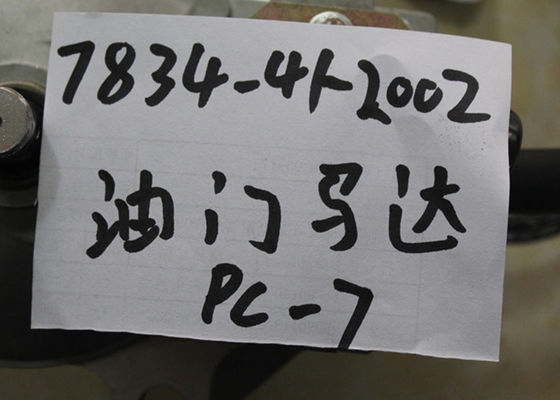 7834-41-2002
油门马达
PC-7